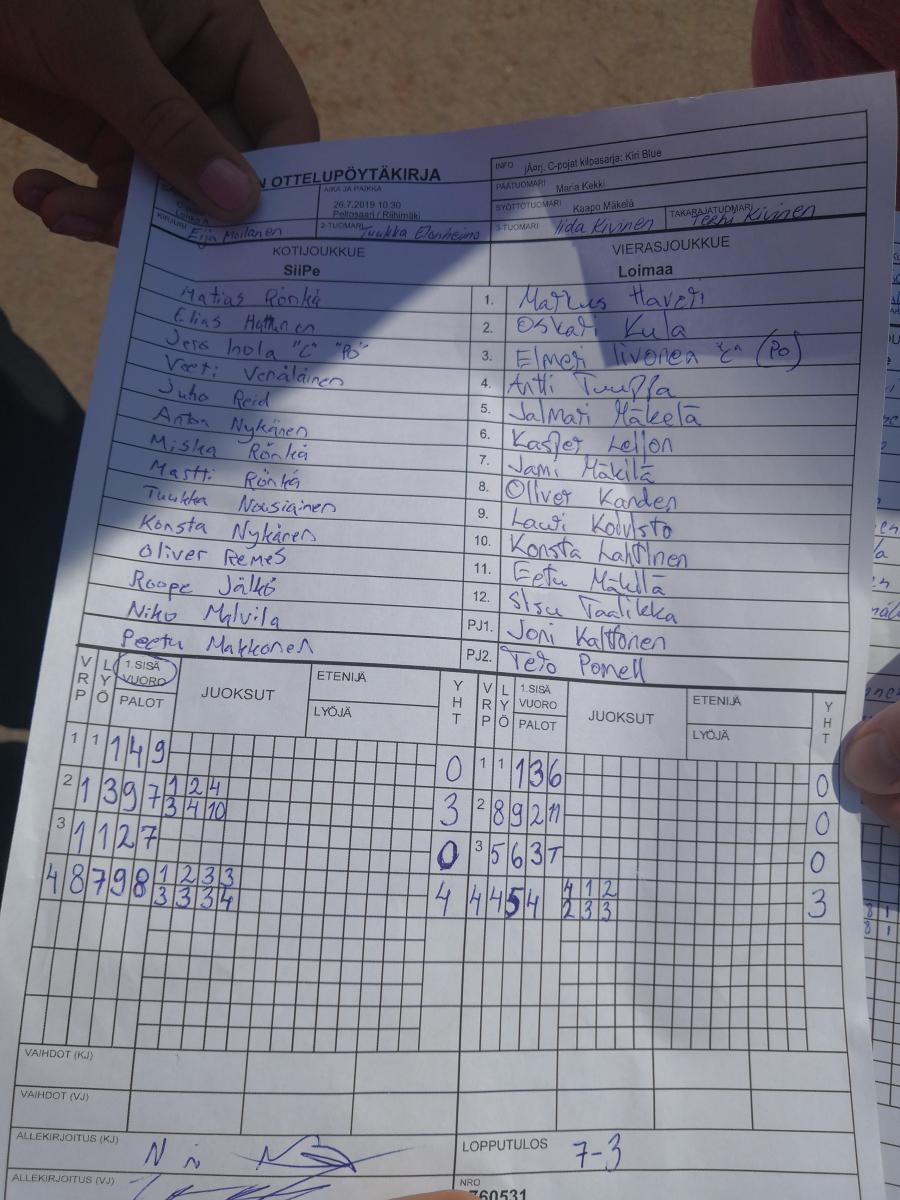 N OTTELUPÖYTÄKIRJA
INFO jÄprj. C-pojat kilpasarja: Kiri Blue
AIKA JA PAIKKA
26.7.2019 10:30
Peltosaari / Riihimäki
PÄÄTUOMARI Maria Kekki
SYÖTTÖTUOMARI Kaapo Mäkelä
TAKARAJATUOMARI Terhi Kivinen
KIRJURI Eija Moilanen
2-TUOMARI Tuukka Elonheimo
3-TUOMARI Iida Kivinen
KOTIJOUKKUE
SiiPe
VIERASJOUKKUE
Loimaa
Matias Rönkä 1. Markus Haveri
Elias Hattunen 2. Oskari Kula
Jere Inola "C" "Po" 3. Elmeri Iivonen "C" (Po)
Veeti Venäläinen 4. Antti Tuuppa
Juho Reid 5. Jalmari Mäkelä
Anton Nykänen 6. Kasper
Miska Rönkä 7. Jami Mäkilä
Martti Rönkä 8. Oliver Kanden
Tuukka Nousiainen 9. Lauri Koivisto
Konsta Nykänen 10. Konsta Lahtinen
Oliver Remes 11. Eetu Mäkilä
Roope Jälkö 12. Sisu Taalikka
Niko Malvila PJ1. Joni Kalttonen
Peetu Makkonen PJ2. Tero Pomell
VRP LYÖ 1.SISÄ VUORO PALOT JUOKSUT ETENIJÄ LYÖJÄ YHT VRP LYÖ 1.SISÄ VUORO PALOT JUOKSUT ETENIJÄ LYÖJÄ YHT
1 1 1 4 9 0 1 1 1 3 6 0
2 1 3 9 7 1 2 4 3 2 8 9 2 11 0
3 4 10
3 1 1 2 7 0 3 5 6 3 T 0
4 8 7 9 8 1 2 3 3 4 4 4 5 4 4 1 2 3
3 3 3 4 2 3 3
VAIHDOT (KJ)
VAIHDOT (VJ)
ALLEKIRJOITUS (KJ)
LOPPUTULOS 7-3
ALLEKIRJOITUS (VJ)
NRO
760531